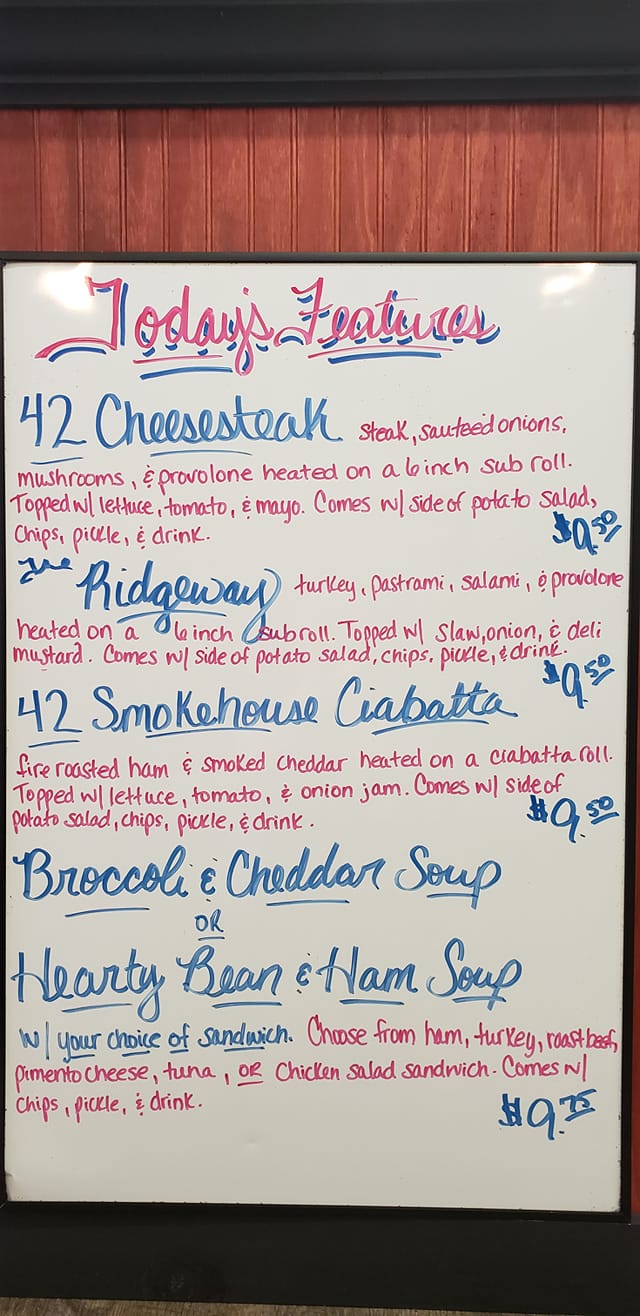 Today's Features
42 Cheesesteak steak, sauteed onions,
mushrooms, & provolone heated on a 6 inch sub roll.
Topped w/ lettuce, tomato, & mayo. Comes w/ side of potato salad,
Chips, pickle, & drink. $9.50
The Ridgeway turkey, pastrami, salami, & provolone
heated on a 6 inch sub roll. Topped w/ slaw, onion, & deli
mustard. Comes w/ side of potato salad, chips, pickle, & drink.
$9.50
42 Smokehouse Ciabatta
fire roasted ham & smoked cheddar heated on a ciabatta roll.
Topped w/ lettuce, tomato, & onion jam. Comes w/ side of
potato salad, chips, pickle, & drink. $9.50
Broccoli & Cheddar Soup
OR
Hearty Bean & Ham Soup
w/ your choice of sandwich. Choose from ham, turkey, roast beef,
pimento cheese, tuna, OR Chicken salad sandwich. Comes w/
chips, pickle, & drink. $9.75